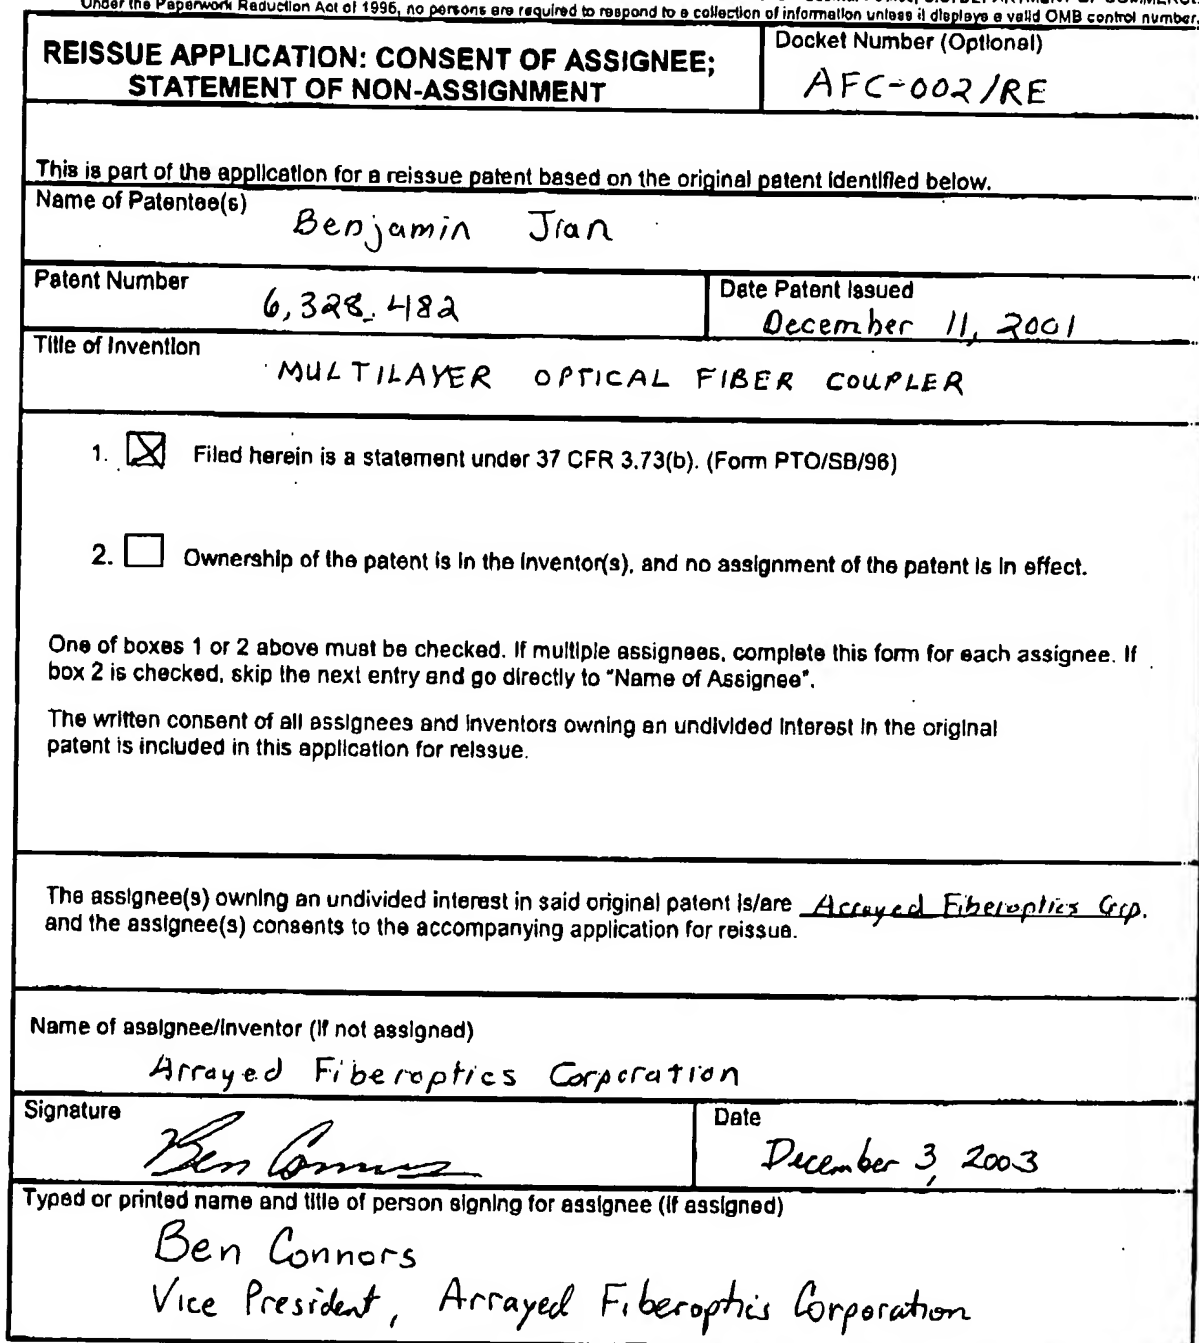 Under the Paperwork Reduction Act of 1996, no persons are required to respond to a collection of information unless it displays a valid OMB control number.
REISSUE APPLICATION: CONSENT OF ASSIGNEE;
STATEMENT OF NON-ASSIGNMENT
Docket Number (Optional)
AFC-002/RE
This is part of the application for a reissue patent based on the original patent identified below.
Name of Patentee(s)
Benjamin Jian
Patent Number
6,328,482
Date Patent Issued
December 11, 2001
Title of Invention
MULTILAYER OPTICAL FIBER COUPLER
1. ☒ Filed herein is a statement under 37 CFR 3.73(b). (Form PTO/SB/96)
2. ☐ Ownership of the patent is in the inventor(s), and no assignment of the patent is in effect.
One of boxes 1 or 2 above must be checked. If multiple assignees, complete this form for each assignee. If
box 2 is checked, skip the next entry and go directly to "Name of Assignee".
The written consent of all assignees and inventors owning an undivided interest in the original
patent is included in this application for reissue.
The assignee(s) owning an undivided interest in said original patent is/are Arrayed Fiberoptics Corp.
and the assignee(s) consents to the accompanying application for reissue.
Name of assignee/inventor (if not assigned)
Arrayed Fiberoptics Corporation
Signature
Ben Connors
Date
December 3, 2003
Typed or printed name and title of person signing for assignee (if assigned)
Ben Connors
Vice President, Arrayed Fiberoptics Corporation